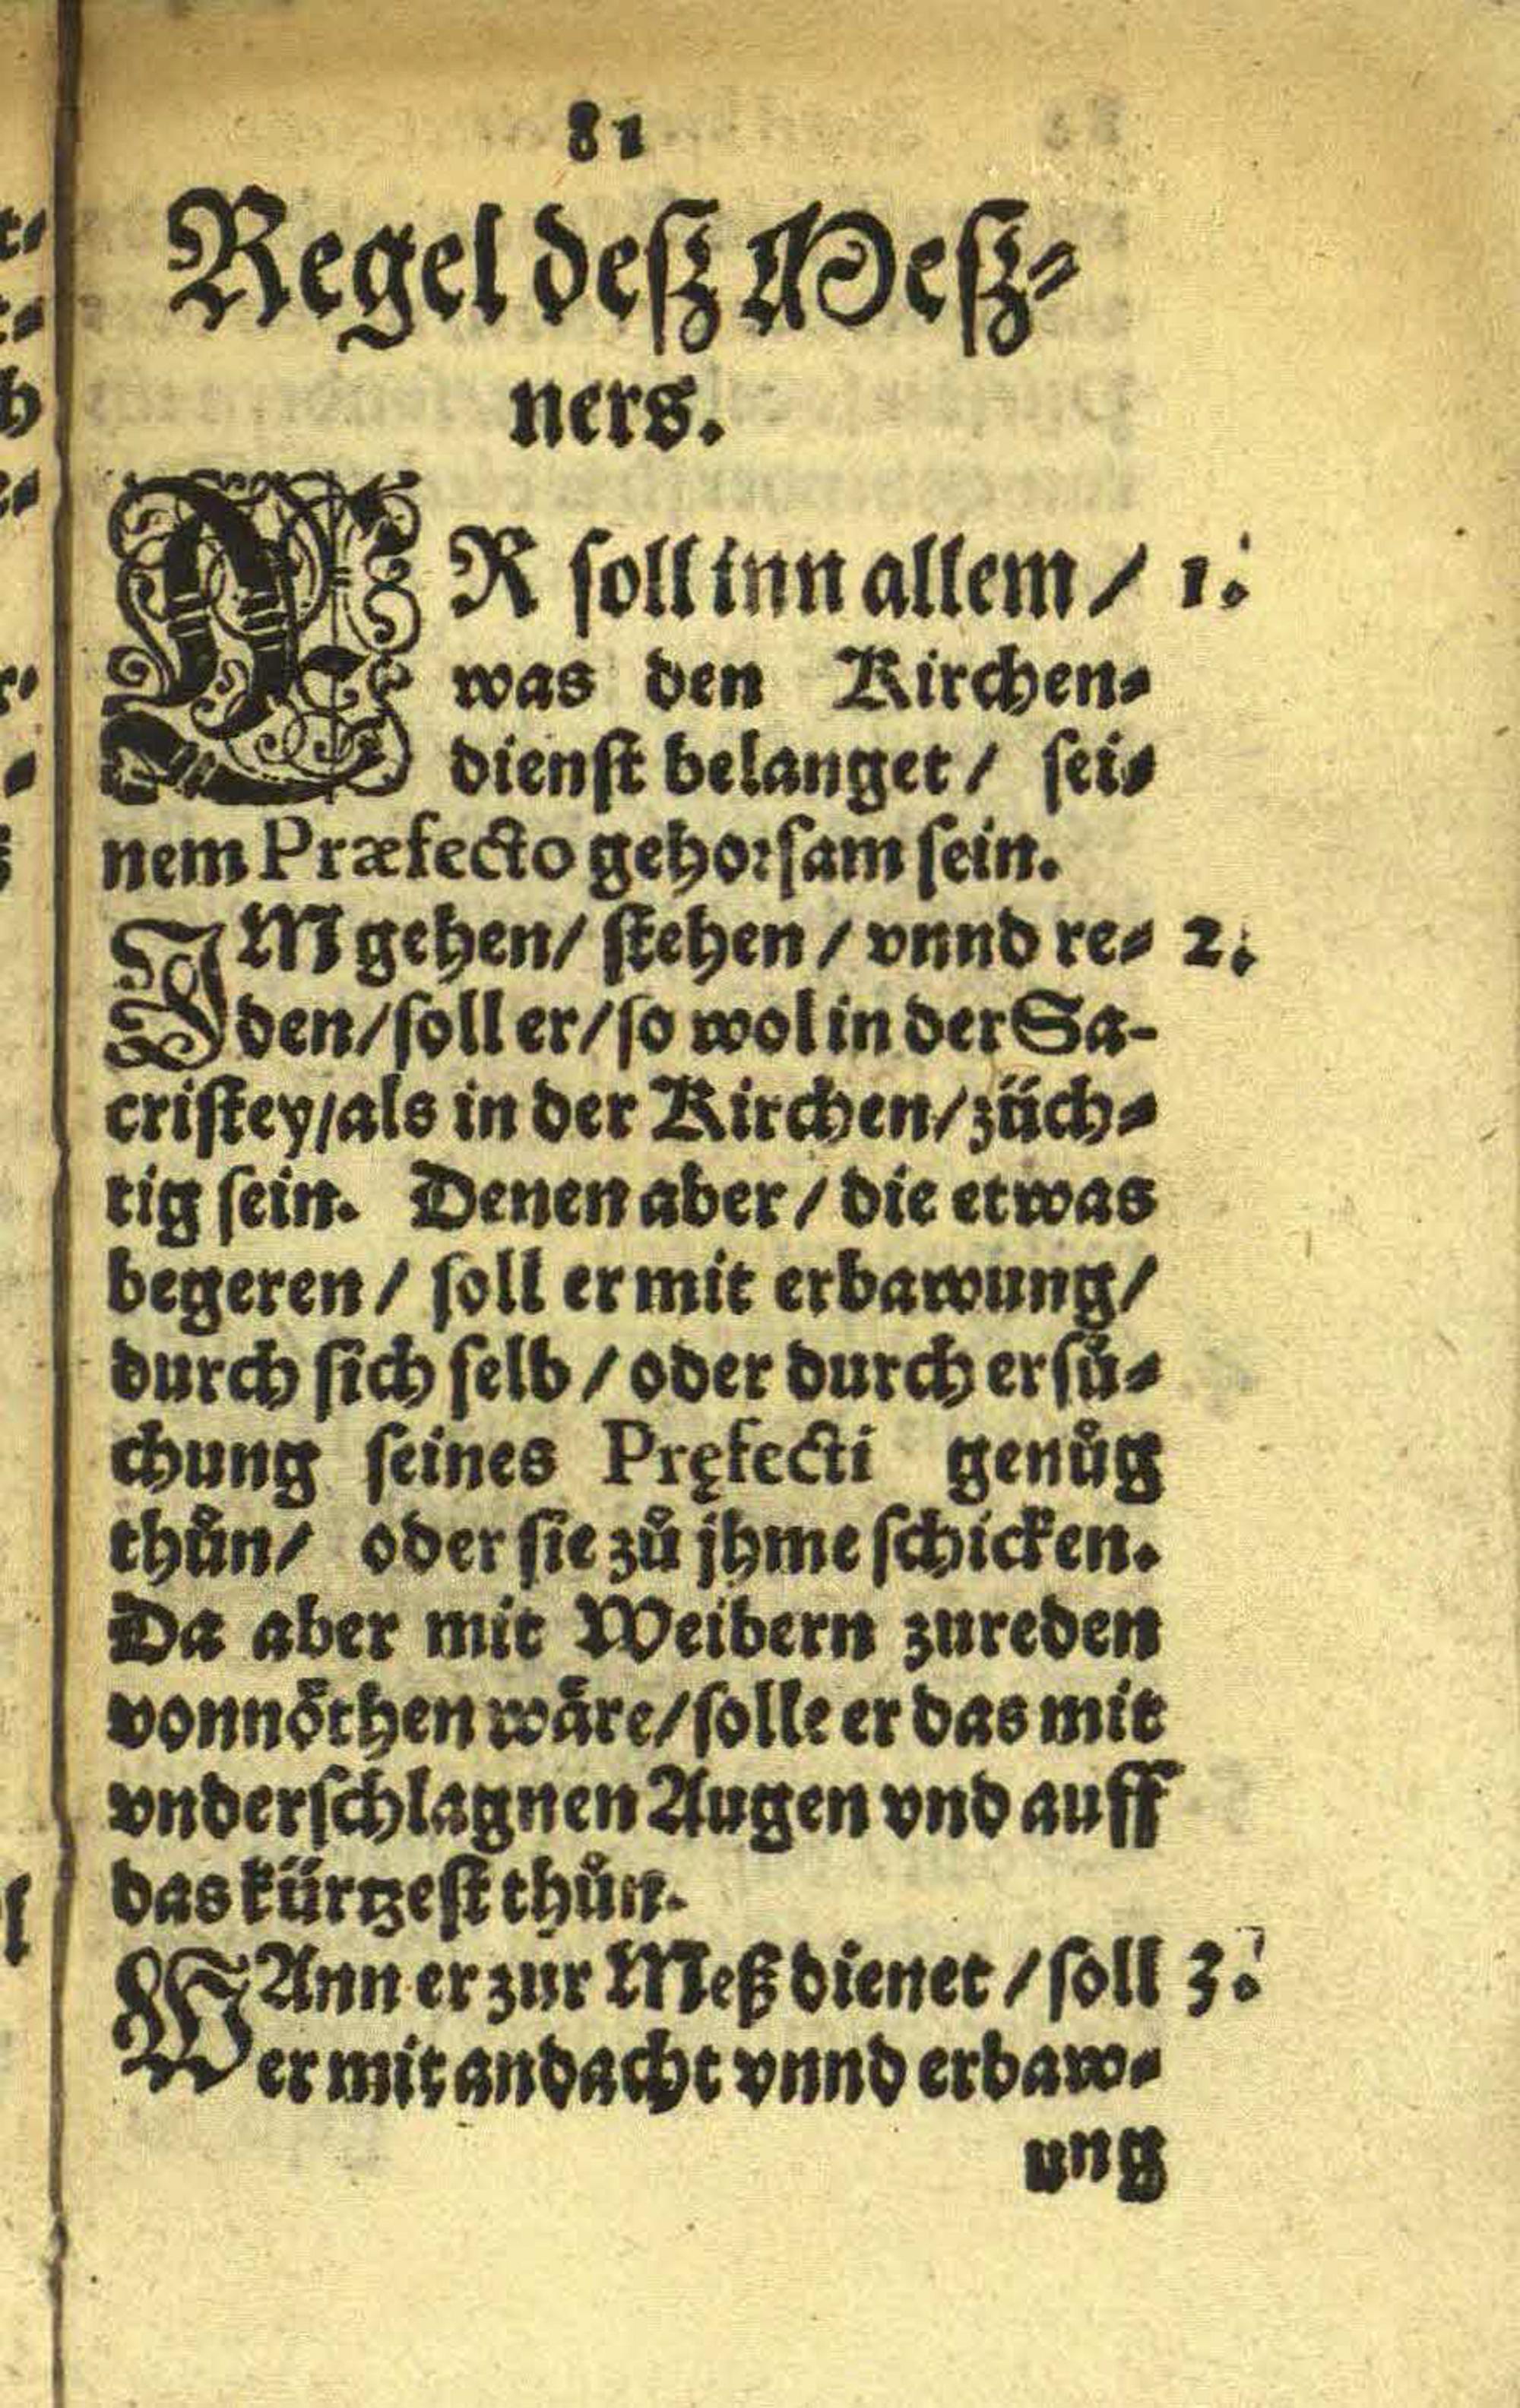 81
Regel deſz Meſz⸗
ners.
ER ſoll inn allem / 1.
was den Kirchen⸗
dienſt belanget / ſei⸗
nem Præfecto gehorſam ſein.
IM gehen / ſtehen / vnnd re⸗ 2.
den / ſoll er / ſo wol in der Sa-
criſtey / als in der Kirchen / züch⸗
tig ſein. Denen aber / die etwas
begeren / ſoll er mit erbawung /
durch ſich ſelb / oder durch erſů⸗
chung ſeines Pręfecti genůg
thůn / oder ſie zů jhme ſchicken.
Da aber mit Weibern zureden
vonnöthen wäre / ſolle er das mit
vnderſchlagnen Augen vnd auff
das kürtzeſt thůn.
WAnn er zur Meß dienet / ſoll 3.
er mit andacht vnnd erbaw⸗
ung